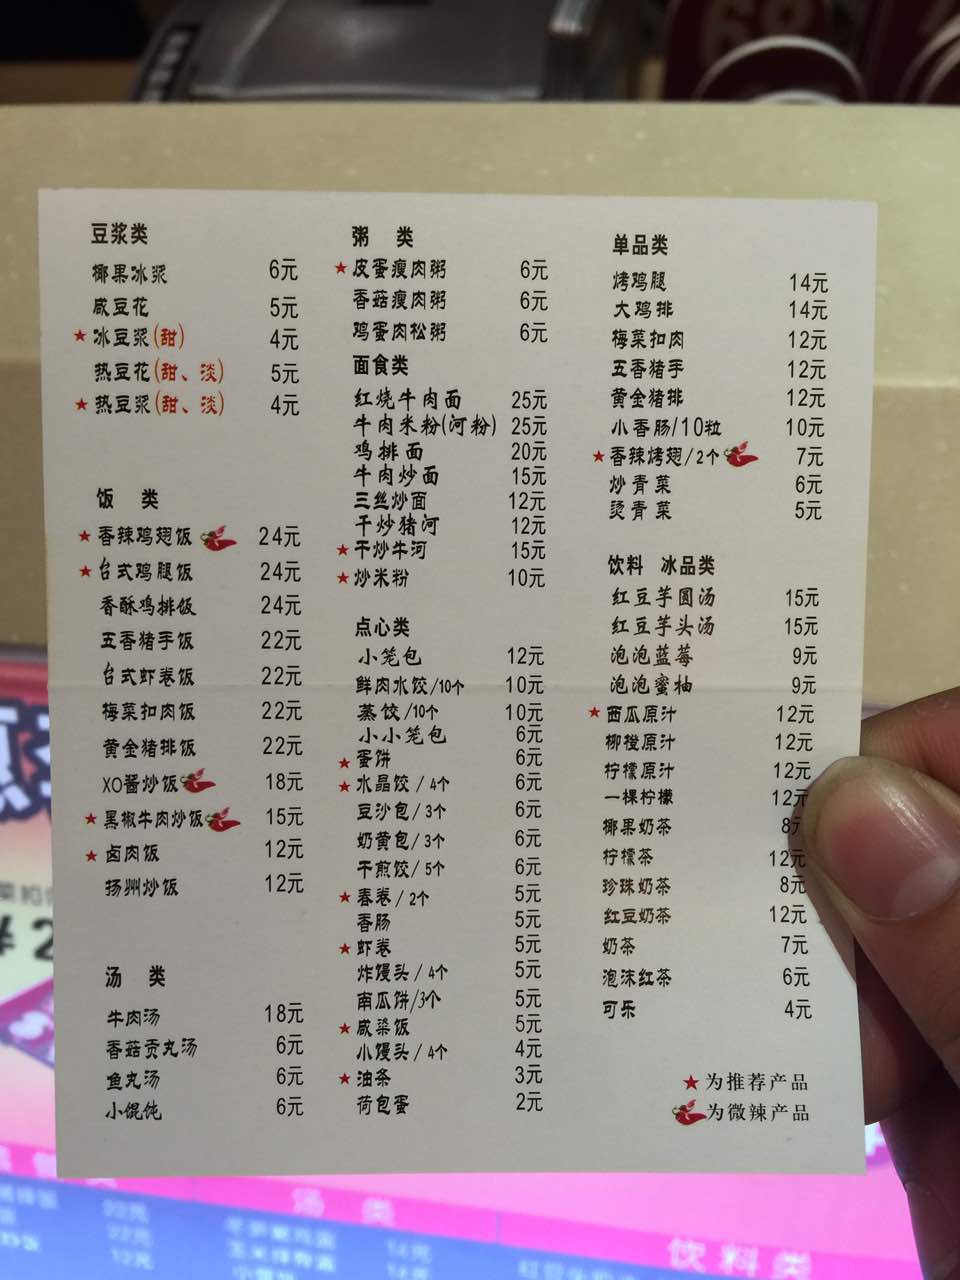 豆浆类
椰果冰浆 6元
咸豆花 5元
★冰豆浆(甜) 4元
热豆花(甜、淡) 5元
★热豆浆(甜、淡) 4元
饭 类
★香辣鸡翅饭 24元
★台式鸡腿饭 24元
香酥鸡排饭 24元
五香猪手饭 22元
台式虾卷饭 22元
梅菜扣肉饭 22元
黄金猪排饭 22元
XO酱炒饭 18元
★黑椒牛肉炒饭 15元
★卤肉饭 12元
扬州炒饭 12元
汤 类
牛肉汤 18元
香菇贡丸汤 6元
鱼丸汤 6元
小馄饨 6元
粥 类
★皮蛋瘦肉粥 6元
香菇瘦肉粥 6元
鸡蛋肉松粥 6元
面食类
红烧牛肉面 25元
牛肉米粉(河粉) 25元
鸡排面 20元
牛肉炒面 15元
三丝炒面 12元
干炒猪河 12元
★干炒牛河 15元
★炒米粉 10元
点心类
小笼包 12元
鲜肉水饺/10个 10元
蒸饺/10个 10元
小小笼包 6元
★蛋饼 6元
★水晶饺/4个 6元
豆沙包/3个 6元
奶黄包/3个 6元
干煎饺/5个 6元
★春卷/2个 5元
香肠 5元
★虾卷 5元
炸馒头/4个 5元
南瓜饼/3个 5元
★咸菜饭 5元
小馒头/4个 4元
★油条 3元
荷包蛋 2元
单品类
烤鸡腿 14元
大鸡排 14元
梅菜扣肉 12元
五香猪手 12元
黄金猪排 12元
小香肠/10粒 10元
★香辣烤翅/2个 7元
炒青菜 6元
烫青菜 5元
饮料 冰品类
红豆芋圆汤 15元
红豆芋头汤 15元
泡泡蓝莓 9元
泡泡蜜柚 9元
★西瓜原汁 12元
柳橙原汁 12元
柠檬原汁 12元
一棵柠檬 12元
椰果奶茶 8元
柠檬茶 12元
珍珠奶茶 8元
红豆奶茶 12元
奶茶 7元
泡沫红茶 6元
可乐 4元
★为推荐产品
为微辣产品
汤 类
饮料类